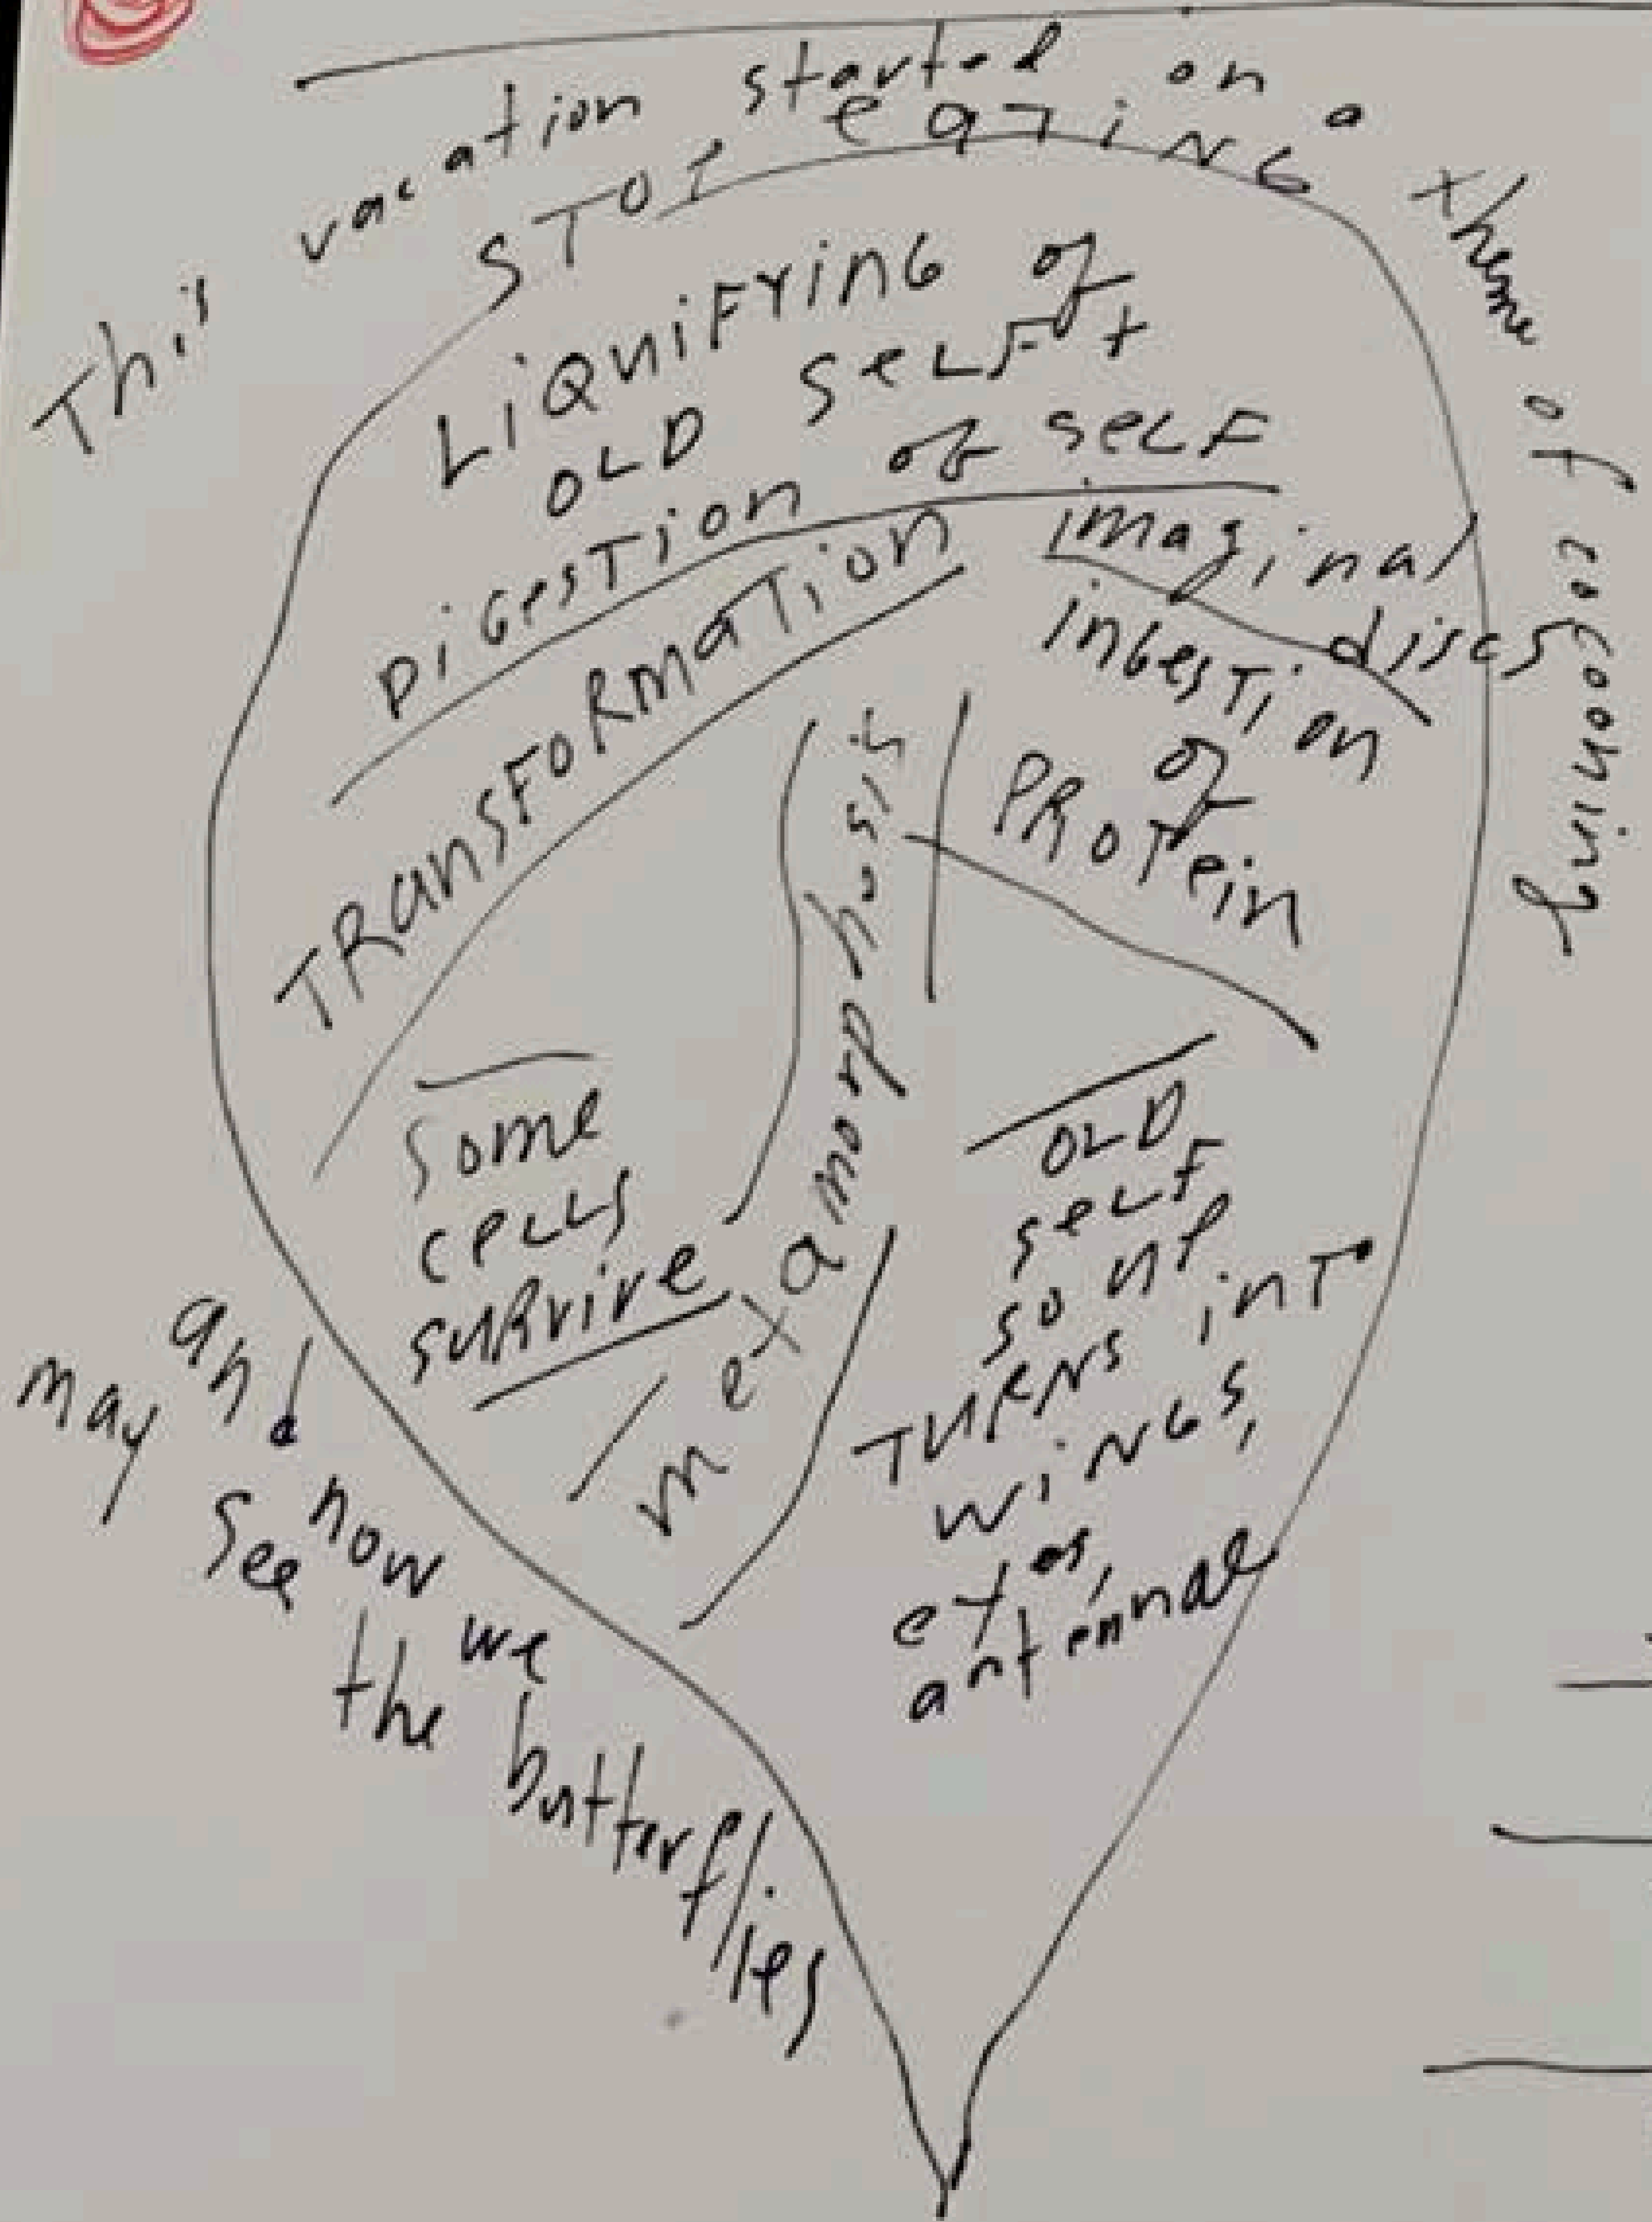 This vacation started on a theme of cocooning
STOP eating
LiQuiFYinG of
OLD SELF +
DiGesTion of SELF
TRansFORmaTion
imaginal
discs
inGesTion
of
PROTein
metamorphosis
Some
cells
suRvive
OLD
SELF
soup
TURNS inTo
WiNGS,
eyes,
antennae
and now we
may see the butterflies